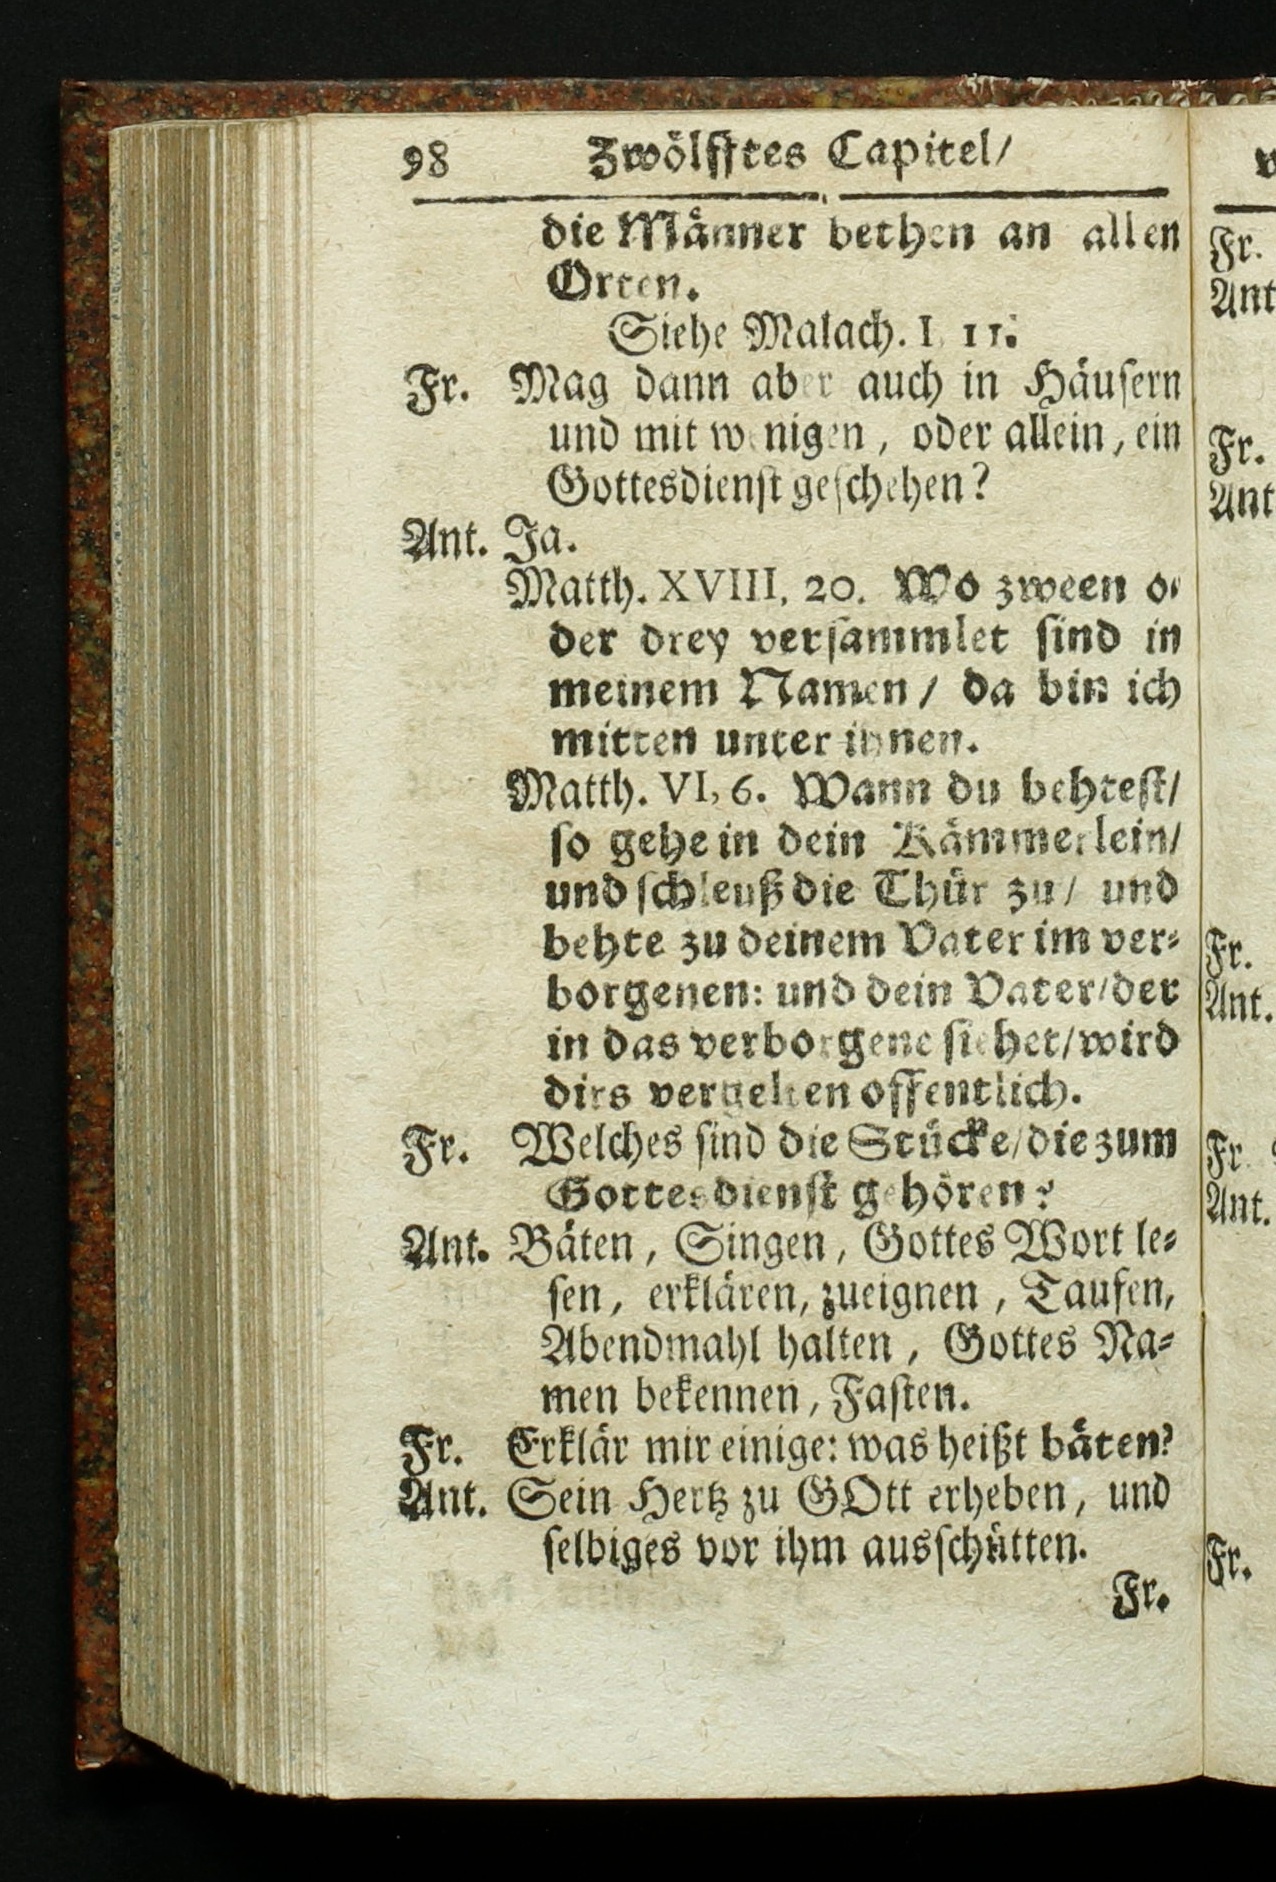 98 Zwölfftes Capitel/
die Männer bethen an allen
Orten.
Siehe Malach. I, 11.
Fr. Mag dann aber auch in Häusern
und mit wenigen, oder allein, ein
Gottesdienst geschehen?
Ant. Ja.
Matth. XVIII, 20. Wo zween o-
der drey versammlet sind in
meinem Namen / da bin ich
mitten unter ihnen.
Matth. VI, 6. Wann du behtest/
so gehe in dein Kämmerlein/
und schleuß die Thür zu / und
behte zu deinem Vater im ver-
borgenen: und dein Vater/der
in das verborgene siehet/wird
dirs vergelten offentlich.
Fr. Welches sind die Stücke/die zum
Gottesdienst gehören?
Ant. Bäten, Singen, Gottes Wort le-
sen, erklären, zueignen, Taufen,
Abendmahl halten, Gottes Na-
men bekennen, Fasten.
Fr. Erklär mir einige: was heißt bäten?
Ant. Sein Hertz zu GOtt erheben, und
selbiges vor ihm ausschütten.
Fr.
Fr.
Ant
Fr.
Ant
Fr.
Ant.
Fr.
Ant.
Fr.